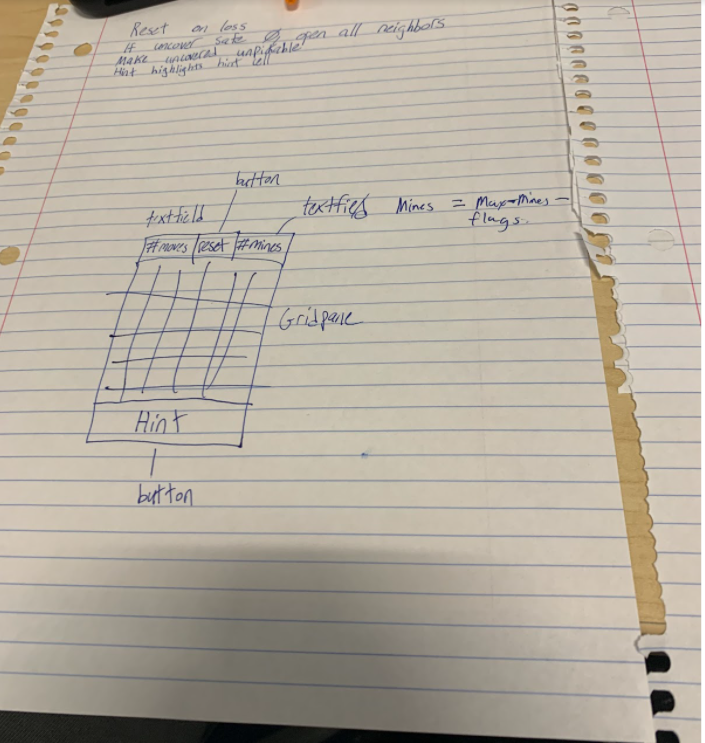 Reset on loss
If uncover safe & open all neighbors
Make uncovered unpickable
Hint highlights hint cell
button
textfield
textfield Mines = Max-Mines -
flags.
#moves reset #mines
Gridpane
Hint
button